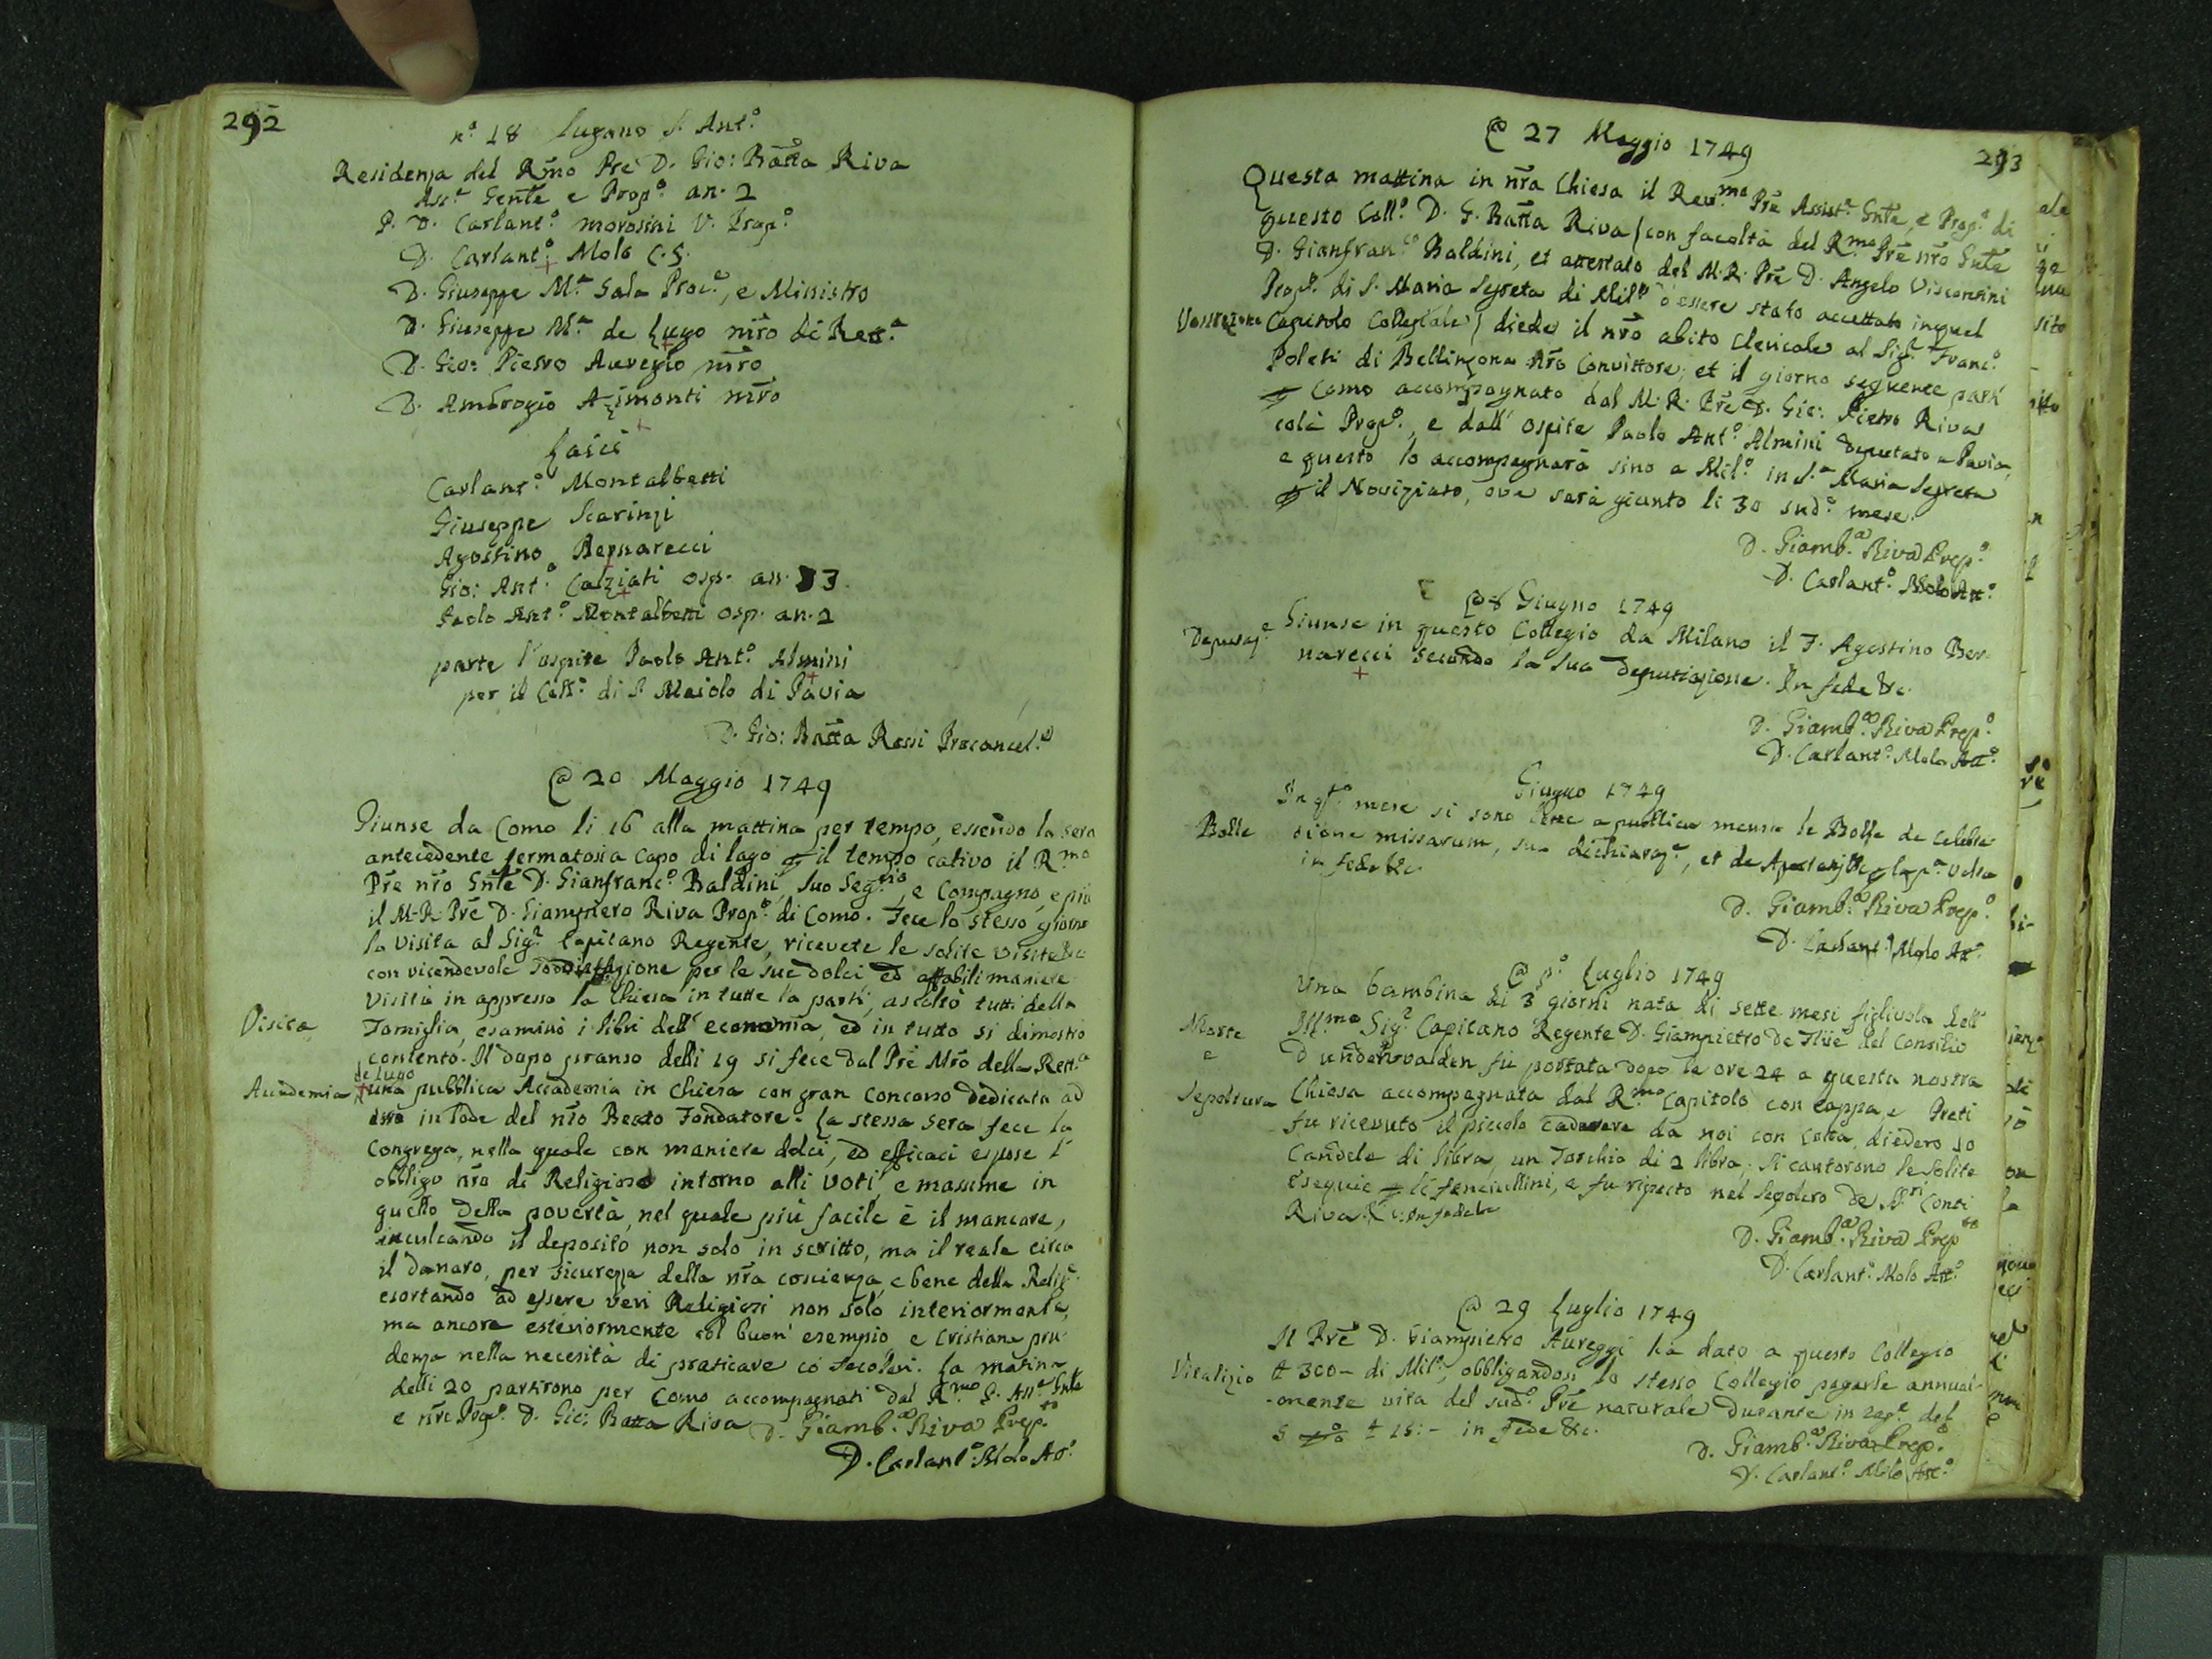 292
n.° 18 Lugano S. Ant.°
Residenza del Rm̃o Pre D. Gio: Batta Riva
Ass.e Gente e Prop.° an. 2
P. D. Carlant.° Morosini V. Prop.°
D. Carlant.° Molo C. S.
D. Giuseppe M.a Sala Proc.e, e Ministro
D. Giuseppe M.a de Lugo mr̃o di Rett.a
D. Gio: Pietro Aureggio mr̃o
D. Ambrogio Azimonti mr̃o
Laici
Carlant.° Montalbetti
Giuseppe Scarinzi
Agostino Bernarecci
Gio: Ant.° Calziati osp. an. 3
Paolo Ant.° Montalbetti osp. an. 2
parte l'ospite Paolo Ant.° Almini
per il Coll.° di S. Maiolo di Pavia
D. Gio: Batta Rossi Procancel.e
@ 20 Maggio 1749
Giunse da Como li 16 alla mattina per tempo, essendo la sera
antecedente fermatosi a Capo di lago p il tempo cativo il R.mo
Pr̃e nr̃o Gnt̃e D. Gianfranc.° Baldini, suo Seg.rio, e Compagno, e più
il M. R. Pr̃e D. Giampiero Riva Prop.° di Como. Fece lo stesso giorno
la visita al Sig.r Capitano Regente, ricevete le solite visite &c
con vicendevole soddisfazione per le sue dolci ed affabili maniere.
Visitò in appresso la Chiesa in tutte la parti, ascoltò tutti della
Visita
Famiglia, esaminò i libri dell' economia, ed in tutto si dimostrò
contento. Il dopo pranso delli 19 si fece dal Pr̃e Mr̃o della Rett.a
de Lugo
Accademia
una pubblica Accademia in Chiesa con gran concorso dedicata ad
esso in lode del nr̃o Beato Fondatore. La stessa sera fece la
Congrega, nella quale con maniere dolci, ed efficaci espose l'
obbligo nr̃o di Religiosi intorno alli voti, e massime in
quello della povertà, nel quale più facile è il mancare,
inculcando il deposito non solo in scritto, ma il reale circa
il danaro, per sicurezza della nr̃a coscienza, e bene della Relig.e
esortando ad essere veri Religiosi non solo interiormente,
ma ancora esteriormente col buon' esempio, e Cristiana pru-
denza nella necesità di praticare co' secolari. La matina
delli 20 partirono per Como accompagnati dal R.mo P. Ass.e Gnt̃e
e nr̃o Prop.° D. Gio: Batta Riva D. Giamb.a Riva Prep.to
D. Carlant.° Molo Att.°
293
@ 27 Maggio 1749
Questa mattina in nr̃a Chiesa il Rev.mo Pr̃e Assist.e Gnt̃e, e Prop.° di
questo Coll.° D. G. Batta Riva (con facoltà del R.mo Pr̃e nr̃o Gnt̃e
D. Gianfran.co Baldini, et attestato del M. R. Pr̃e D. Angelo Visconsini
Prop.° di S. Maria Segreta di Mil.° d'essere stato accettato in quel
Vestizione
Capitolo Collegiale) diede il nr̃o abito Clericale al Sig.r Franc.°
Poleti di Bellinzona nr̃o Convittore; et il giorno seguente partì
p Como accompagnato dal M. R. Pr̃e D. Gio: Pietro Riva
colà Prop.°, e dall' ospite Paolo Ant.° Almini deputato a Pavia,
e questo lo accompagnarà sino a Mil.° in S.a Maria Segreta
p il Noviziato, ove sarà giunto li 30 sud.° mese.
D. Giamb.a Riva Prep.°
D. Carlant.° Molo Att.°
@ 8 Giugno 1749
Deputaz.e
Giunse in questo Collegio da Milano il F. Agostino Ber-
narecci secondo la sua deputazione. In fede &c.
D. Giamb.a Riva Prep.°
D. Carlant.° Molo Att.°
Giugno 1749
Bolle
In q.to mese si sono lette a publica mensa le Bolle de Celebra-
tione missarum, sua dichiaraz.e, et de p la p.a volta
in fede &c
D. Giamb.a Riva Prep.°
D. Carlant.° Molo Att.°
@ p.° Luglio 1749
Una bambina di 3 giorni nata di sette mesi figlivola dell'
Morte
e
Sepoltura
Ill.mo Sig.r Capitano Regente D. Giampietro De Flüe del Consilio
D'undervvalden fù portata dopo le ore 24 a questa nostra
Chiesa accompagnata dal R.mo Capitolo con cappa, e Preti
fu ricevuto il piccolo cadavere da noi con cotta, diedero 10
Candele di libra, un Torchio di 2 libra. Si cantorono le solite
esequie p li fanciullini, e fu riposto nel sepolcro de Sg.ri Conti
Riva. In fede &c
D. Giamb.a Riva Prep.to
D. Carlant.° Molo Att.°
@ 29 Luglio 1749
Vitalizio
Il Pr̃e D. Giampietro Aureggi hà dato a questo Collegio
₤ 300 - di Mil.°, obbligandosi lo stesso Collegio pagarle annual-
-mente vita del sud.° Pr̃e naturale durante in rag.e del
5 p % ₤ 15: - in fede &c.
D. Giamb.a Riva Prep.°
D. Carlant.° Molo Att.°